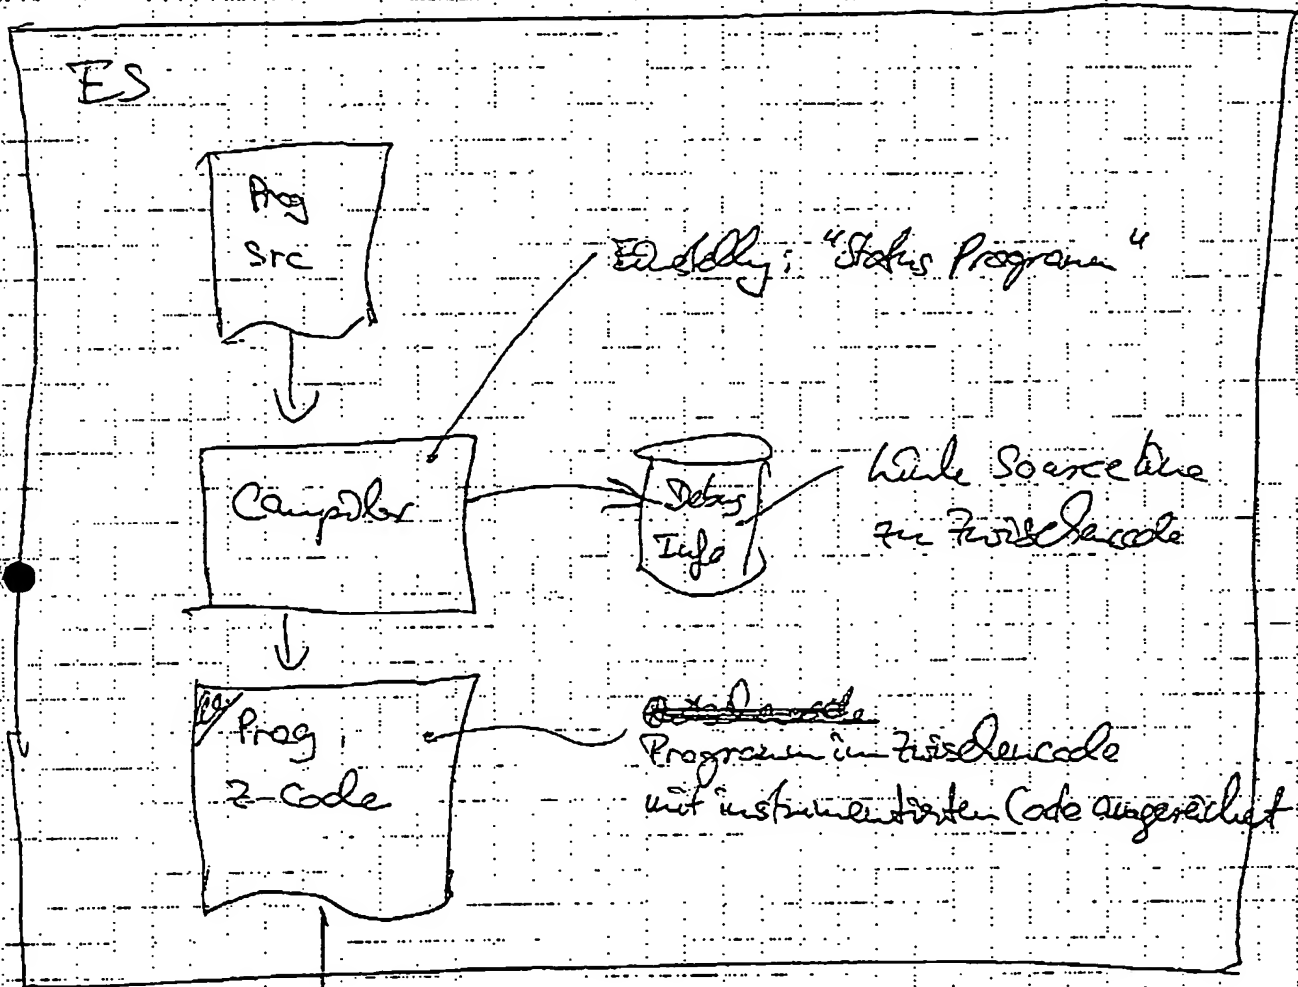 ES
Prog
Src
Einstellg: "Status Programm"
Compiler
Debug
Info
Links Sourceline
zu Zwischencode
Prog
Z-Code
Programm im Zwischencode
mit instrumentierten Code angereichert